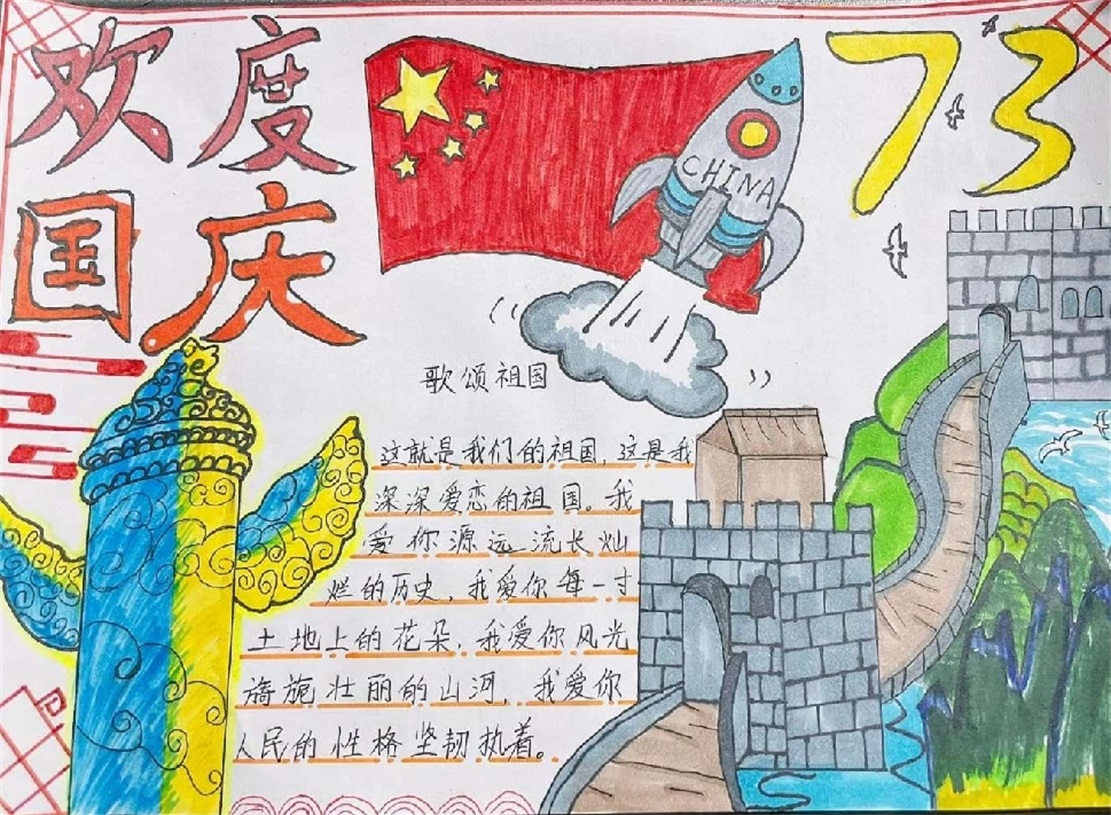 欢度
国庆
73
CHINA
歌颂祖国
这就是我们的祖国，这是我
深深爱恋的祖国。我
爱你源远流长灿
烂的历史，我爱你每一寸
土地上的花朵，我爱你风光
旖旎壮丽的山河，我爱你
人民的性格坚韧执着。